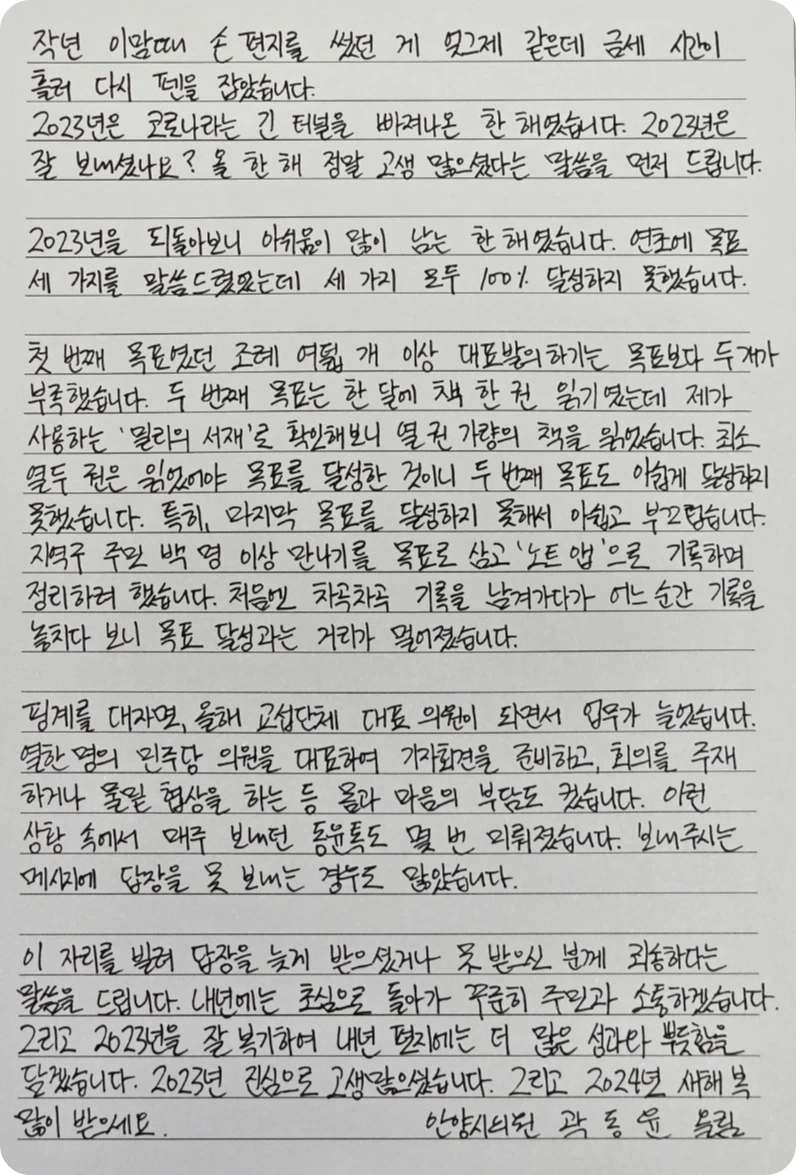 작년 이맘때 손 편지를 썼던 게 엊그제 같은데 금세 시간이
흘러 다시 펜을 잡았습니다.
2023년은 코로나라는 긴 터널을 빠져나온 한 해였습니다. 2023년은
잘 보내셨나요? 올 한 해 정말 고생 많으셨다는 말씀을 먼저 드립니다.
2023년을 되돌아보니 아쉬움이 많이 남는 한 해였습니다. 연초에 목표
세 가지를 말씀드렸었는데 세 가지 모두 100% 달성하지 못했습니다.
첫 번째 목표였던 조례 여덟 개 이상 대표발의하기는 목표보다 두 개가
부족했습니다. 두 번째 목표는 한 달에 책 한 권 읽기였는데 제가
사용하는 '밀리의 서재'로 확인해보니 열 권 가량의 책을 읽었습니다. 최소
열두 권은 읽었어야 목표를 달성한 것이니 두 번째 목표도 아쉽게 달성하지
못했습니다. 특히, 마지막 목표를 달성하지 못해서 아쉽고 부끄럽습니다.
지역구 주민 백 명 이상 만나기를 목표로 삼고 '노트 앱'으로 기록하며
정리하려 했습니다. 처음엔 차곡차곡 기록을 남겨가다가 어느 순간 기록을
놓치다 보니 목표 달성과는 거리가 멀어졌습니다.
핑계를 대자면, 올해 교섭단체 대표 의원이 되면서 업무가 늘었습니다.
열한 명의 민주당 의원을 대표하여 기자회견을 준비하고, 회의를 주재
하거나 물밑 협상을 하는 등 몸과 마음의 부담도 컸습니다. 이런
상황 속에서 매주 보내던 동윤톡도 몇 번 미뤄졌습니다. 보내주시는
메시지에 답장을 못 보내는 경우도 많았습니다.
이 자리를 빌려 답장을 늦게 받으셨거나 못 받으신 분께 죄송하다는
말씀을 드립니다. 내년에는 초심으로 돌아가 꾸준히 주민과 소통하겠습니다.
그리고 2023년을 잘 복기하여 내년 편지에는 더 많은 성과와 뿌듯함을
담겠습니다. 2023년 진심으로 고생많으셨습니다. 그리고 2024년 새해 복
많이 받으세요. 안양시의원 곽동윤 올림